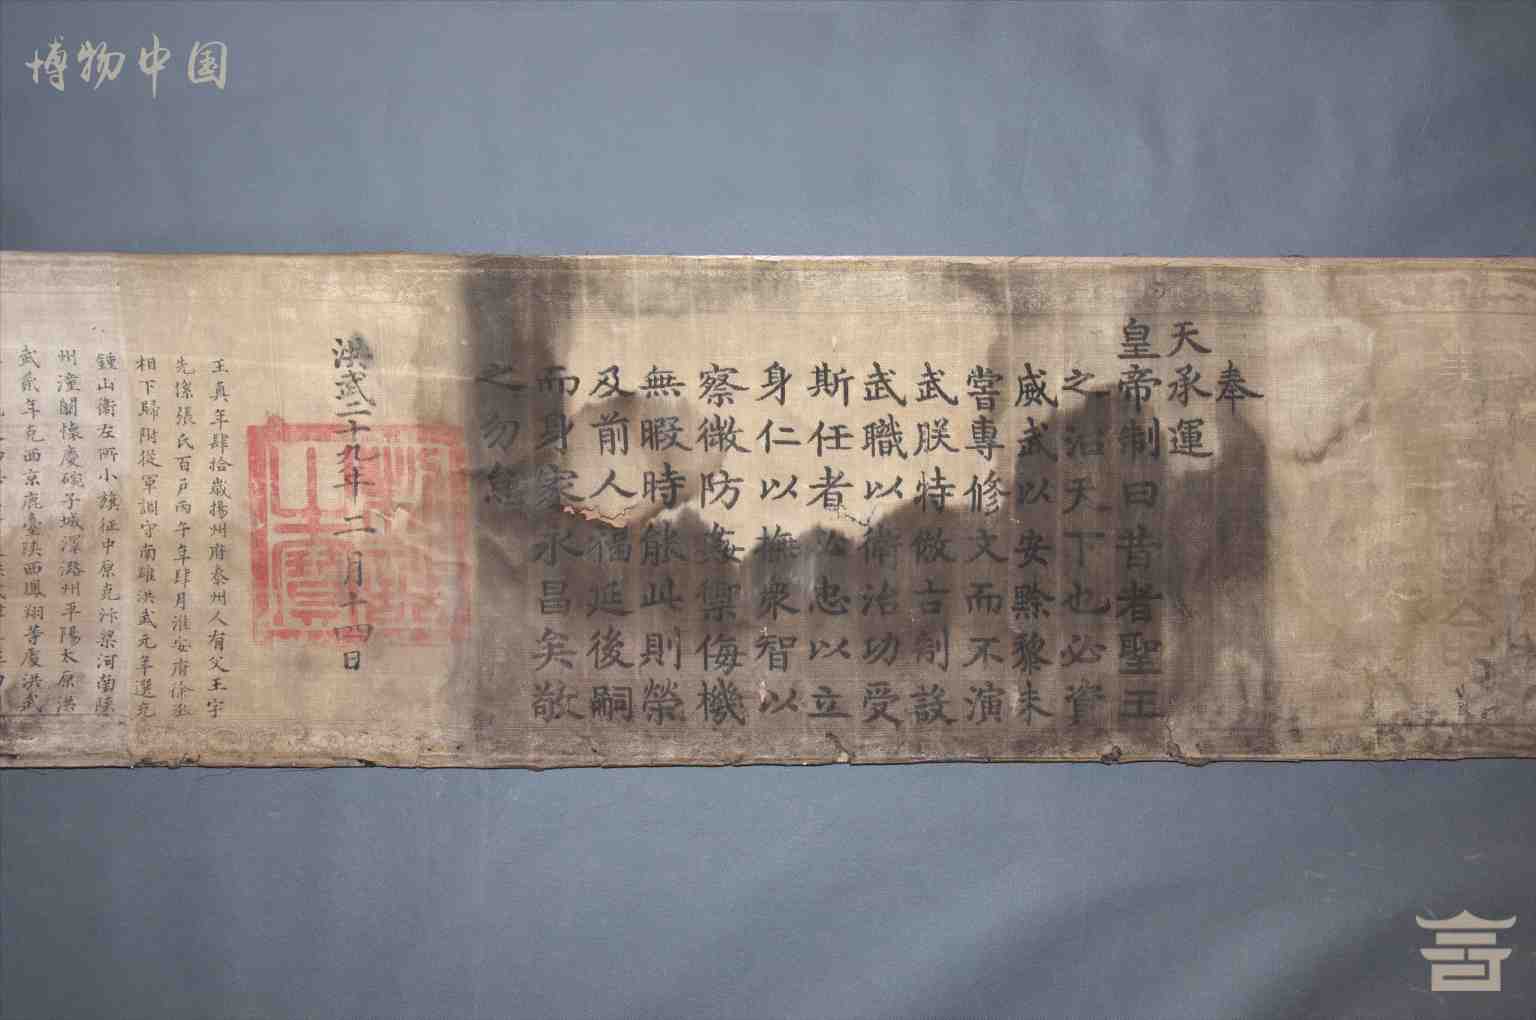 博物中国
奉
天承運
皇帝制曰昔者聖王
之治天下也必資
威武以安黔黎未
嘗專修文而不演
武朕特倣古制設
武職以衛治功受
斯任者必忠以立
身仁以撫衆智以
察微防姦禦侮機
無暇時能此則榮
及前人福延後嗣
而身家永昌矣敬
之勿怠
洪武二十九年二月十四日
王真年肆拾歲揚州府泰州人有父王宇
先係張氏百戶丙午年肆月淮安府徐丞
相下歸附從軍調守南雄洪武元年選充
鍾山衛左所小旗征中原克汴梁河南陝
州潼關懷慶碗子城澤潞州平陽太原洪
武貳年克西京鹿臺陝西鳳翔等處洪武